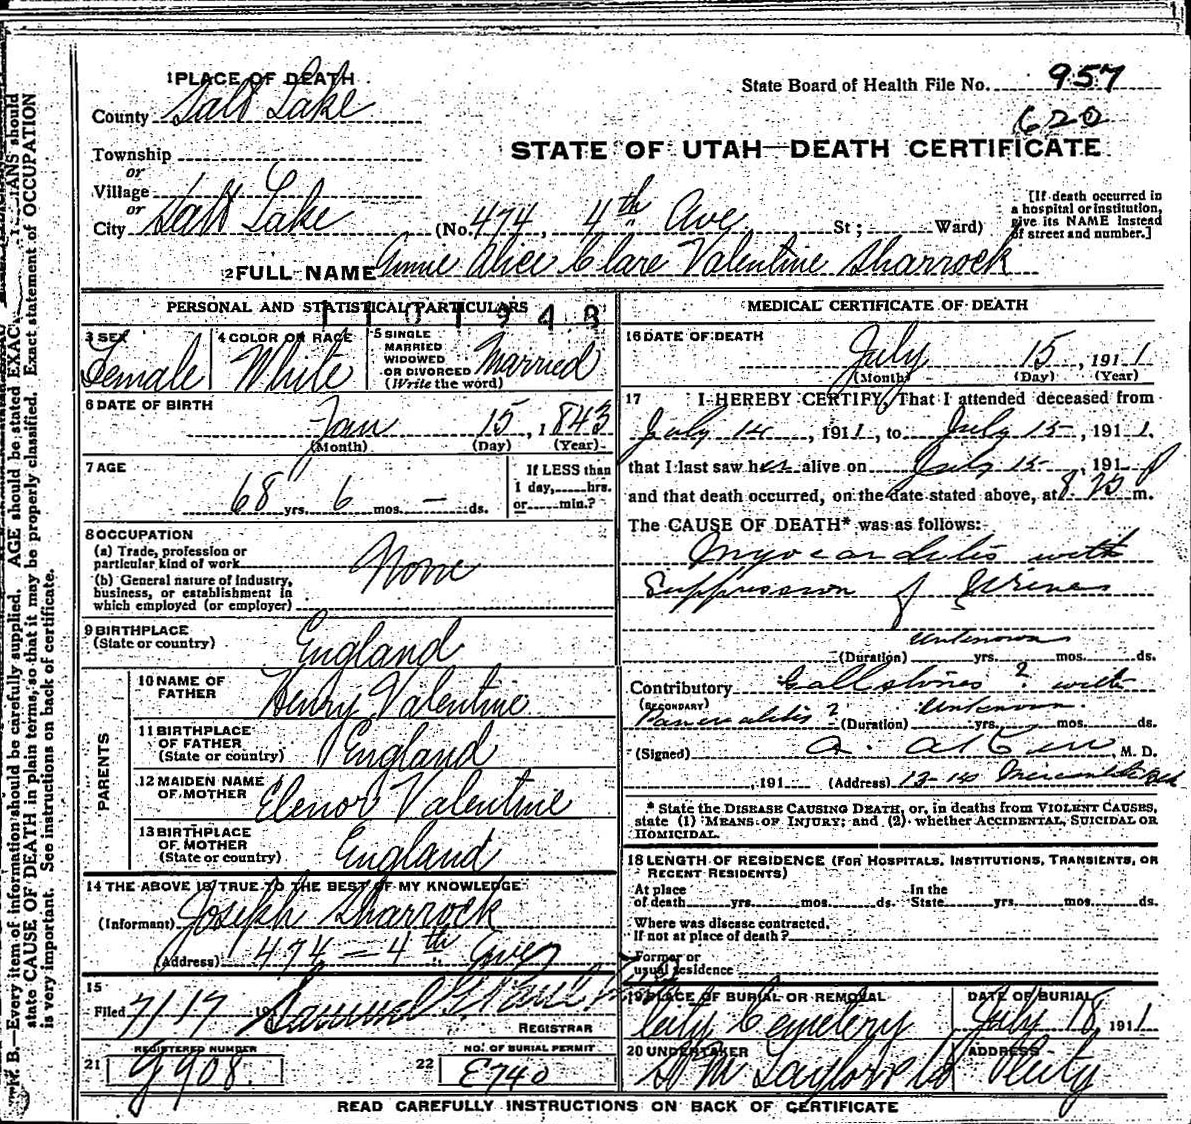 1 PLACE OF DEATH
County Salt Lake
State Board of Health File No. 957
620
Township
or
Village
or
City Salt Lake (No. 474, 4th Ave St; Ward)
STATE OF UTAH—DEATH CERTIFICATE
[If death occurred in
a hospital or institution,
give its NAME instead
of street and number.]
2 FULL NAME Annie Alice Clare Valentine Sharrock
PERSONAL AND STATISTICAL PARTICULARS
1 1 0 1 9 4 8
3 SEX Female
4 COLOR OR RACE White
5 SINGLE
MARRIED
WIDOWED
OR DIVORCED
(Write the word) Married
6 DATE OF BIRTH
Jan 15, 1843
(Month) (Day) (Year)
7 AGE
68 yrs. 6 mos. — ds.
If LESS than
1 day, hrs.
or min.?
8 OCCUPATION
(a) Trade, profession or
particular kind of work None
(b) General nature of industry,
business, or establishment in
which employed (or employer)
9 BIRTHPLACE
(State or country) England
PARENTS
10 NAME OF
FATHER Henry Valentine
11 BIRTHPLACE
OF FATHER
(State or country) England
12 MAIDEN NAME
OF MOTHER Elenor Valentine
13 BIRTHPLACE
OF MOTHER
(State or country) England
14 THE ABOVE IS TRUE TO THE BEST OF MY KNOWLEDGE
(Informant) Joseph Sharrock
(Address) 474 – 4th Ave
15
Filed 7/17 191 Samuel G. Paul
REGISTRAR
21 REGISTERED NUMBER
9908
22 NO. OF BURIAL PERMIT
E740
MEDICAL CERTIFICATE OF DEATH
16 DATE OF DEATH
July 15, 1911
(Month) (Day) (Year)
17 I HEREBY CERTIFY, That I attended deceased from
July 14, 1911, to July 15, 1911,
that I last saw her alive on July 15, 191
and that death occurred, on the date stated above, at m.
The CAUSE OF DEATH* was as follows:
Myocarditis with
Suppression of Urine
Unknown
(Duration) yrs. mos. ds.
Contributory Gallstones? with
(SECONDARY)
Pancreatitis? Unknown
(Duration) yrs. mos. ds.
(Signed) M. D.
, 191 (Address) 13-14
* State the DISEASE CAUSING DEATH, or, in deaths from VIOLENT CAUSES,
state (1) MEANS OF INJURY; and (2) whether ACCIDENTAL, SUICIDAL OR
HOMICIDAL.
18 LENGTH OF RESIDENCE (FOR HOSPITALS, INSTITUTIONS, TRANSIENTS, OR
RECENT RESIDENTS)
At place
of death yrs. mos. ds.
In the
State yrs. mos. ds.
Where was disease contracted,
If not at place of death?
Former or
usual residence
19 PLACE OF BURIAL OR REMOVAL
City Cemetery
DATE OF BURIAL
July 18, 1911
20 UNDERTAKER
S M Taylor & Co
ADDRESS
City
READ CAREFULLY INSTRUCTIONS ON BACK OF CERTIFICATE
N. B.—Every item of information should be carefully supplied. AGE should be stated EXACTLY. PHYSICIANS should
state CAUSE OF DEATH in plain terms, so that it may be properly classified. Exact statement of OCCUPATION
is very important. See instructions on back of certificate.